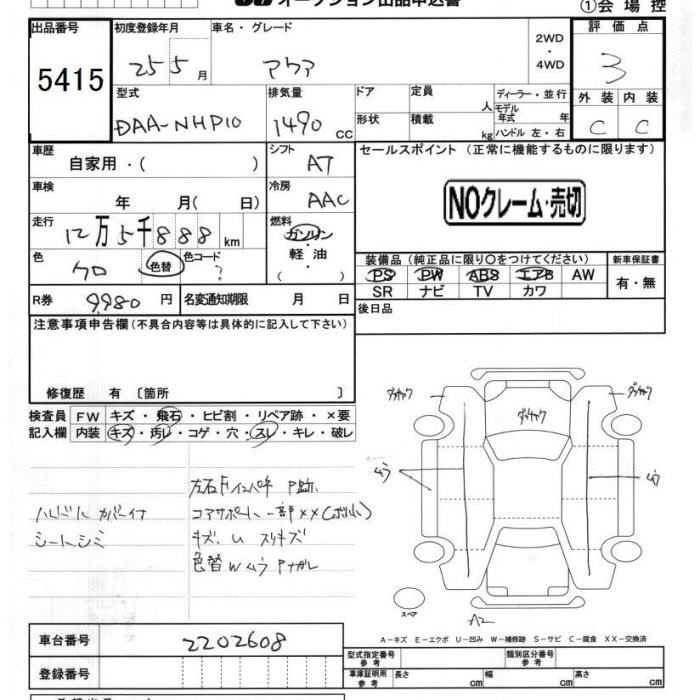 オークション出品申込書
①会場控
出品番号 初度登録年月 車名・グレード 評価点
5415 25 5月 アクア 2WD・4WD 3
型式 排気量 ドア 定員 人 ディーラー・並行 外装 内装
DAA-NHP10 1490 CC 形状 積載 kg モデル年式 年 ハンドル 左・右 C C
車歴 シフト セールスポイント (正常に機能するものに限ります)
自家用・( ) AT
車検 冷房
年 月( 日) AAC NOクレーム・売切
走行 燃料
12万5千888km ガソリン
色 色コード 軽油
クロ 色替 ? ・( )
装備品(純正品に限り○をつけてください) 新車保証書
PS PW ABS エアB AW 有・無
SR ナビ TV カワ
R券 9,980円 名変通知期限 月 日 後日品
注意事項申告欄(不具合内容等は具体的に記入して下さい)
修復歴 有〔箇所 〕
検査員 FW キズ・飛石・ヒビ割・リペア跡・×要
記入欄 内装 キズ・汚レ・コゲ・穴・スレ・キレ・破レ
ハンドルカバー付
シートシミ
左右Fインパネ P跡
コアサポート一部XX(ボルト)
キズ、U スリキズ
色替Wムラ Pナガレ
ムラ
ムラ
スペア
A2
A−キズ E−エクボ U−凹み W−補修跡 S−サビ C−腐食 XX−交換済
車台番号 2202608
型式指定番号 参考 類別区分番号 参考
登録番号 車庫証明用 参考 長さ cm 幅 cm 高さ cm